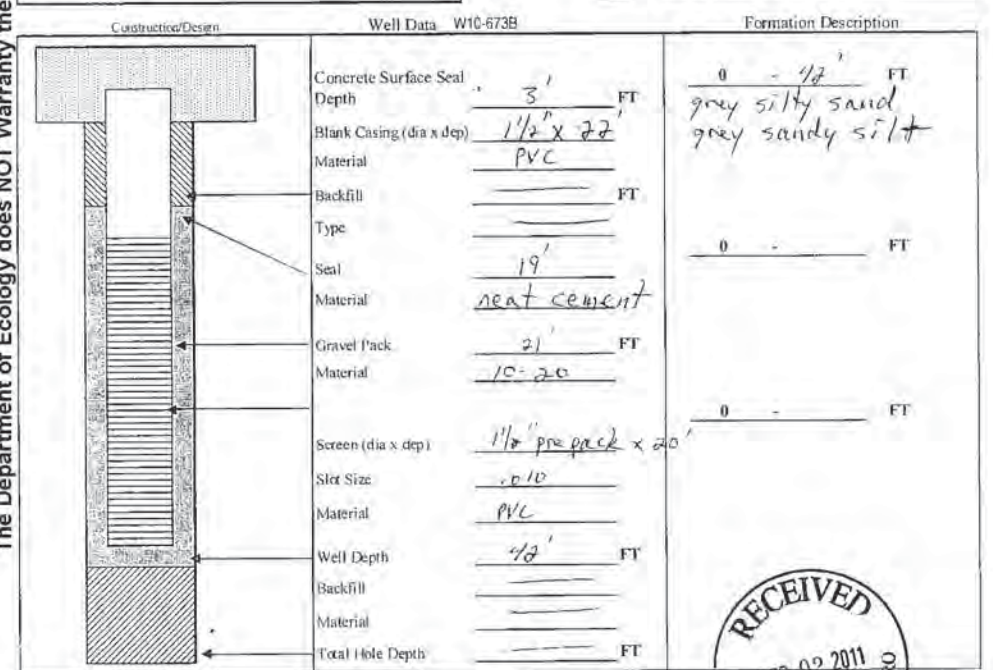 The Department of Ecology does NOT Warranty the
Construction/Design
Well Data W10-673B
Formation Description
Concrete Surface Seal
Depth 3' FT
Blank Casing (dia x dep) 1 1/2" x 22'
Material PVC
Backfill — FT
Type —
Seal 19'
Material neat cement
Gravel Pack 21' FT
Material 10-20
Screen (dia x dep) 1 1/2" prepack x 20'
Slot Size .010
Material PVC
Well Depth 42' FT
Backfill —
Material —
Total Hole Depth — FT
0 - 42' FT
grey silty sand
grey sandy silt
0 - FT
0 - FT
RECEIVED
02 2011